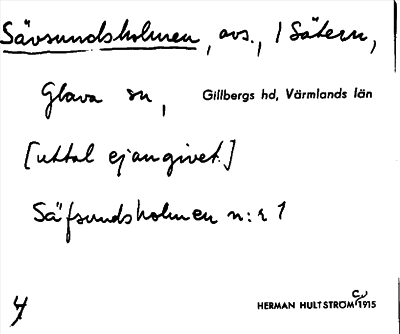 Sävsundsholmen, avs., / Sätern,
Glava sn, Gillbergs hd, Värmlands län
[uttal ej angivet.]
Säfsundsholmen n:r 1
4 HERMAN HULTSTRÖM 1915